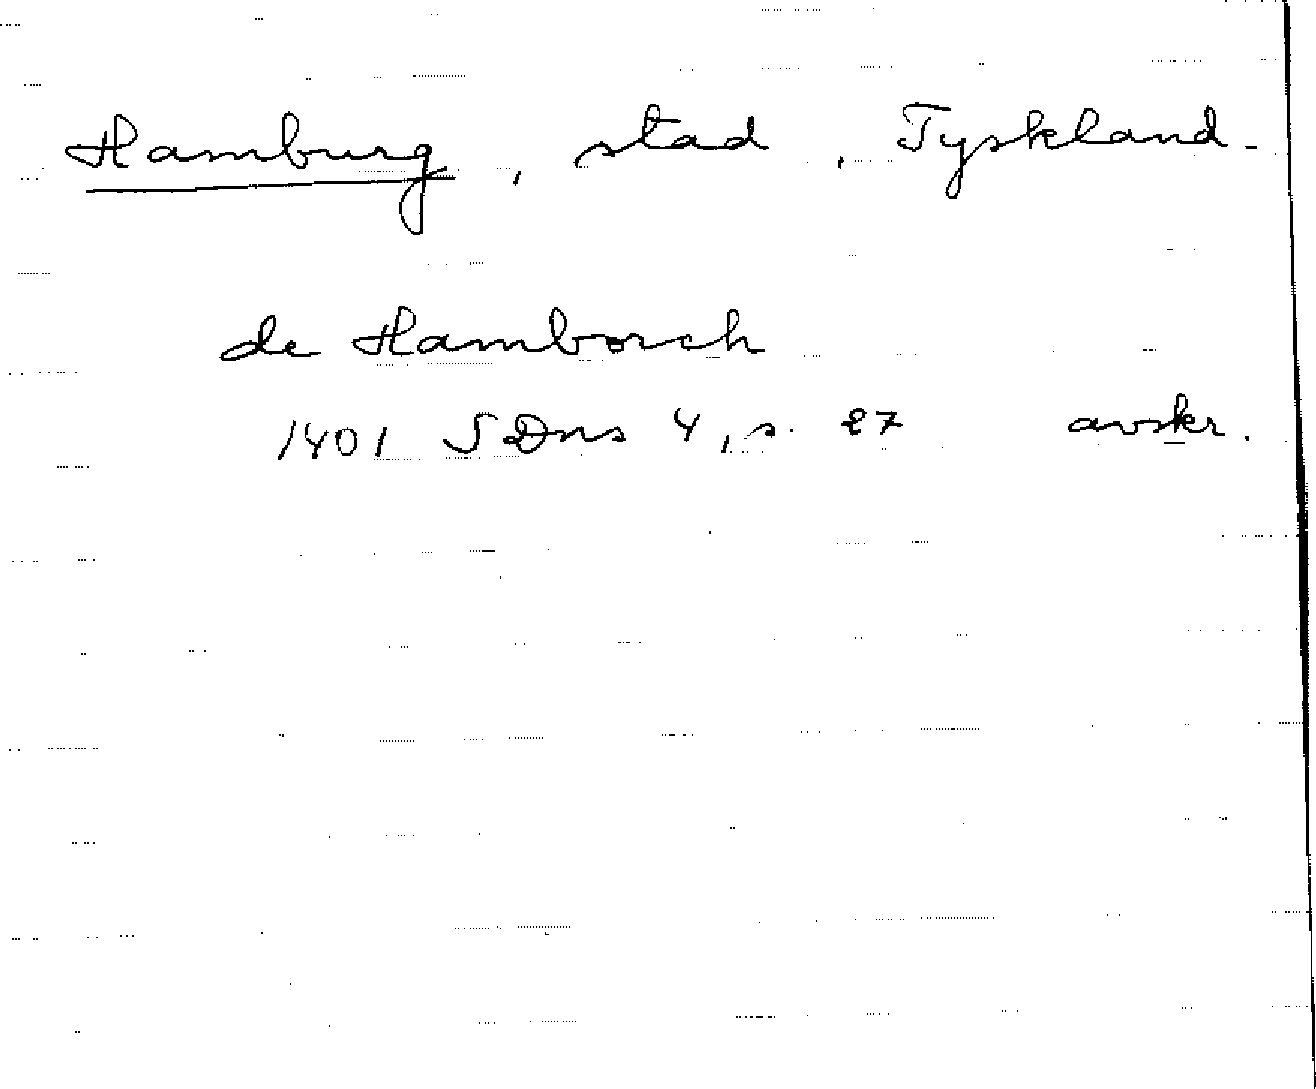 Hamburg, stad, Tyskland.
de Hamborch
1401 SDns 4, s. 27 avskr.